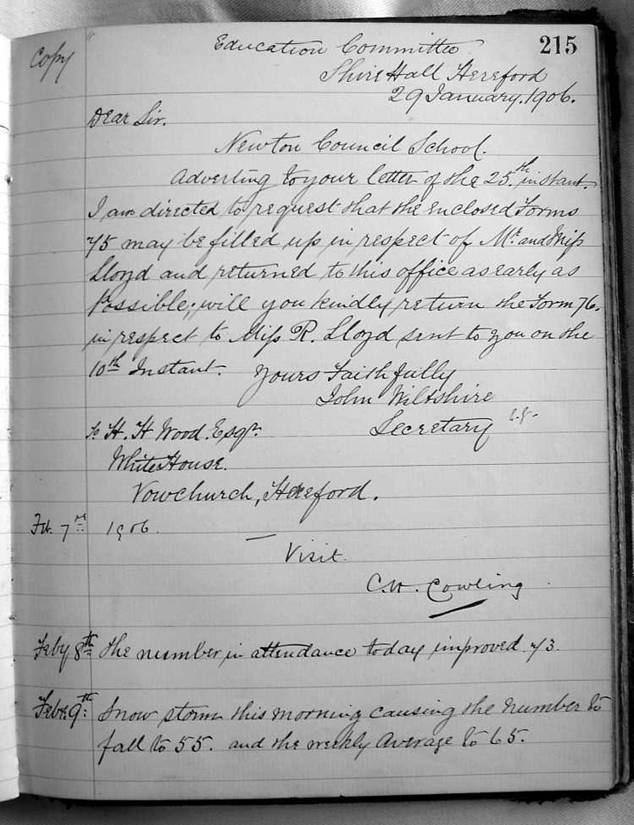 Copy
Education Committee
215
Shire Hall Hereford
29 January. 1906.
Dear Sir.
Newton Council School.
Adverting to your letter of the 25th instant.
I am directed to request that the enclosed Forms
75 may be filled up in respect of Mr. and Miss
Lloyd and returned to this office as early as
Possible; will you kindly return the Form 76.
in respect to Miss R. Lloyd sent to you on the
10th Instant. Yours Faithfully
John Wiltshire
Secretary
To H. H Wood. Esqr.
White House.
Vowchurch, Hereford.
Feb. 7th 1906.
Visit.
C.W. Cowling
Feby 8th The number in attendance today improved 73.
Feb. 9th: Snow storm this morning causing the number to
fall to 55. and the weekly Average to 65.